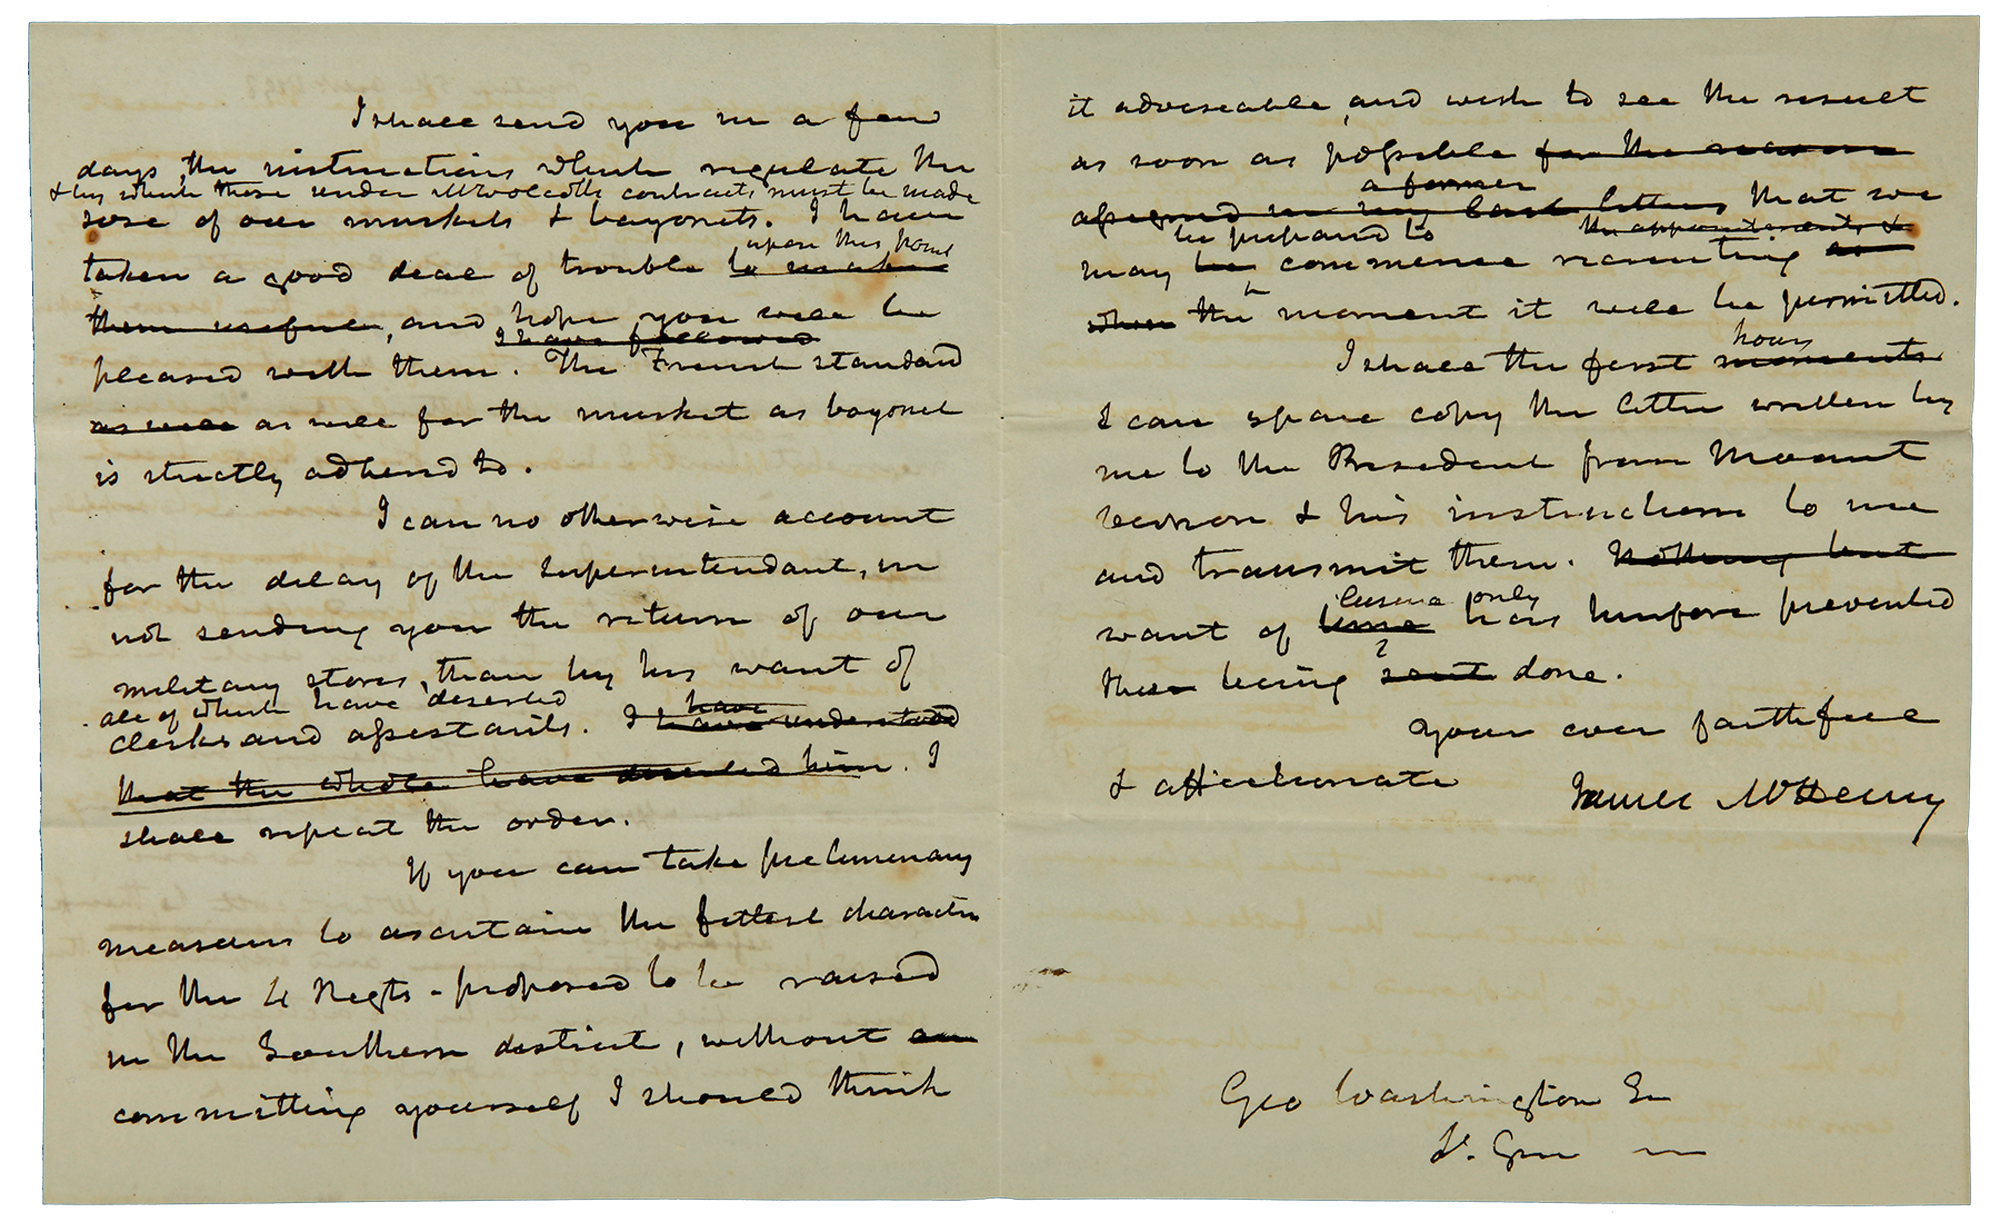 I shall send you in a few
days, the instructions which regulate the
& by which those under Mr Wolcotts contracts must be made
size of our muskets & bayonets. I have
upon this point
taken a good deal of trouble to make
them useful, and hope you will be
I have followed
pleased with them. The French standard
as well as well for the musket as bayonet
is strictly adhered to.
I can no otherwise account
for the delay of the Superintendant, in
not sending you the return of our
military stores, than by his want of
all of which have deserted
clerks and assistants. I have understood
have
that the whole have deserted him. I
shall repeat the order.
If you can take preliminary
measures to ascertain the fittest characters
for the 4 Regts - proposed to be raised
in the Southern district, without
committing yourself I should think
it adviseable, and wish to see the result
as soon as possible for the reason
a former
assigned in my last letters that we
be prepared to the appointments &
may be commence recruiting as
when the moment it will be permitted.
hours
I shall the first moments
I can spare copy the letter written by
me to the President from Mount
Vernon & his instructions to me
and transmit them. Nothing but
leisure only
want of time has heretofore prevented
these being sent done.
Your ever faithful
& affectionate James McHenry
Geo Washington
Lt. Gen